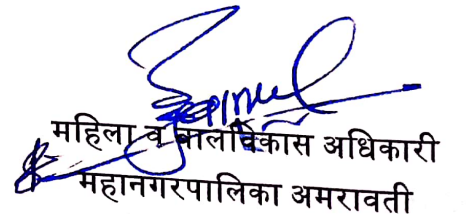 महिला व बालविकास अधिकारी
महानगरपालिका अमरावती